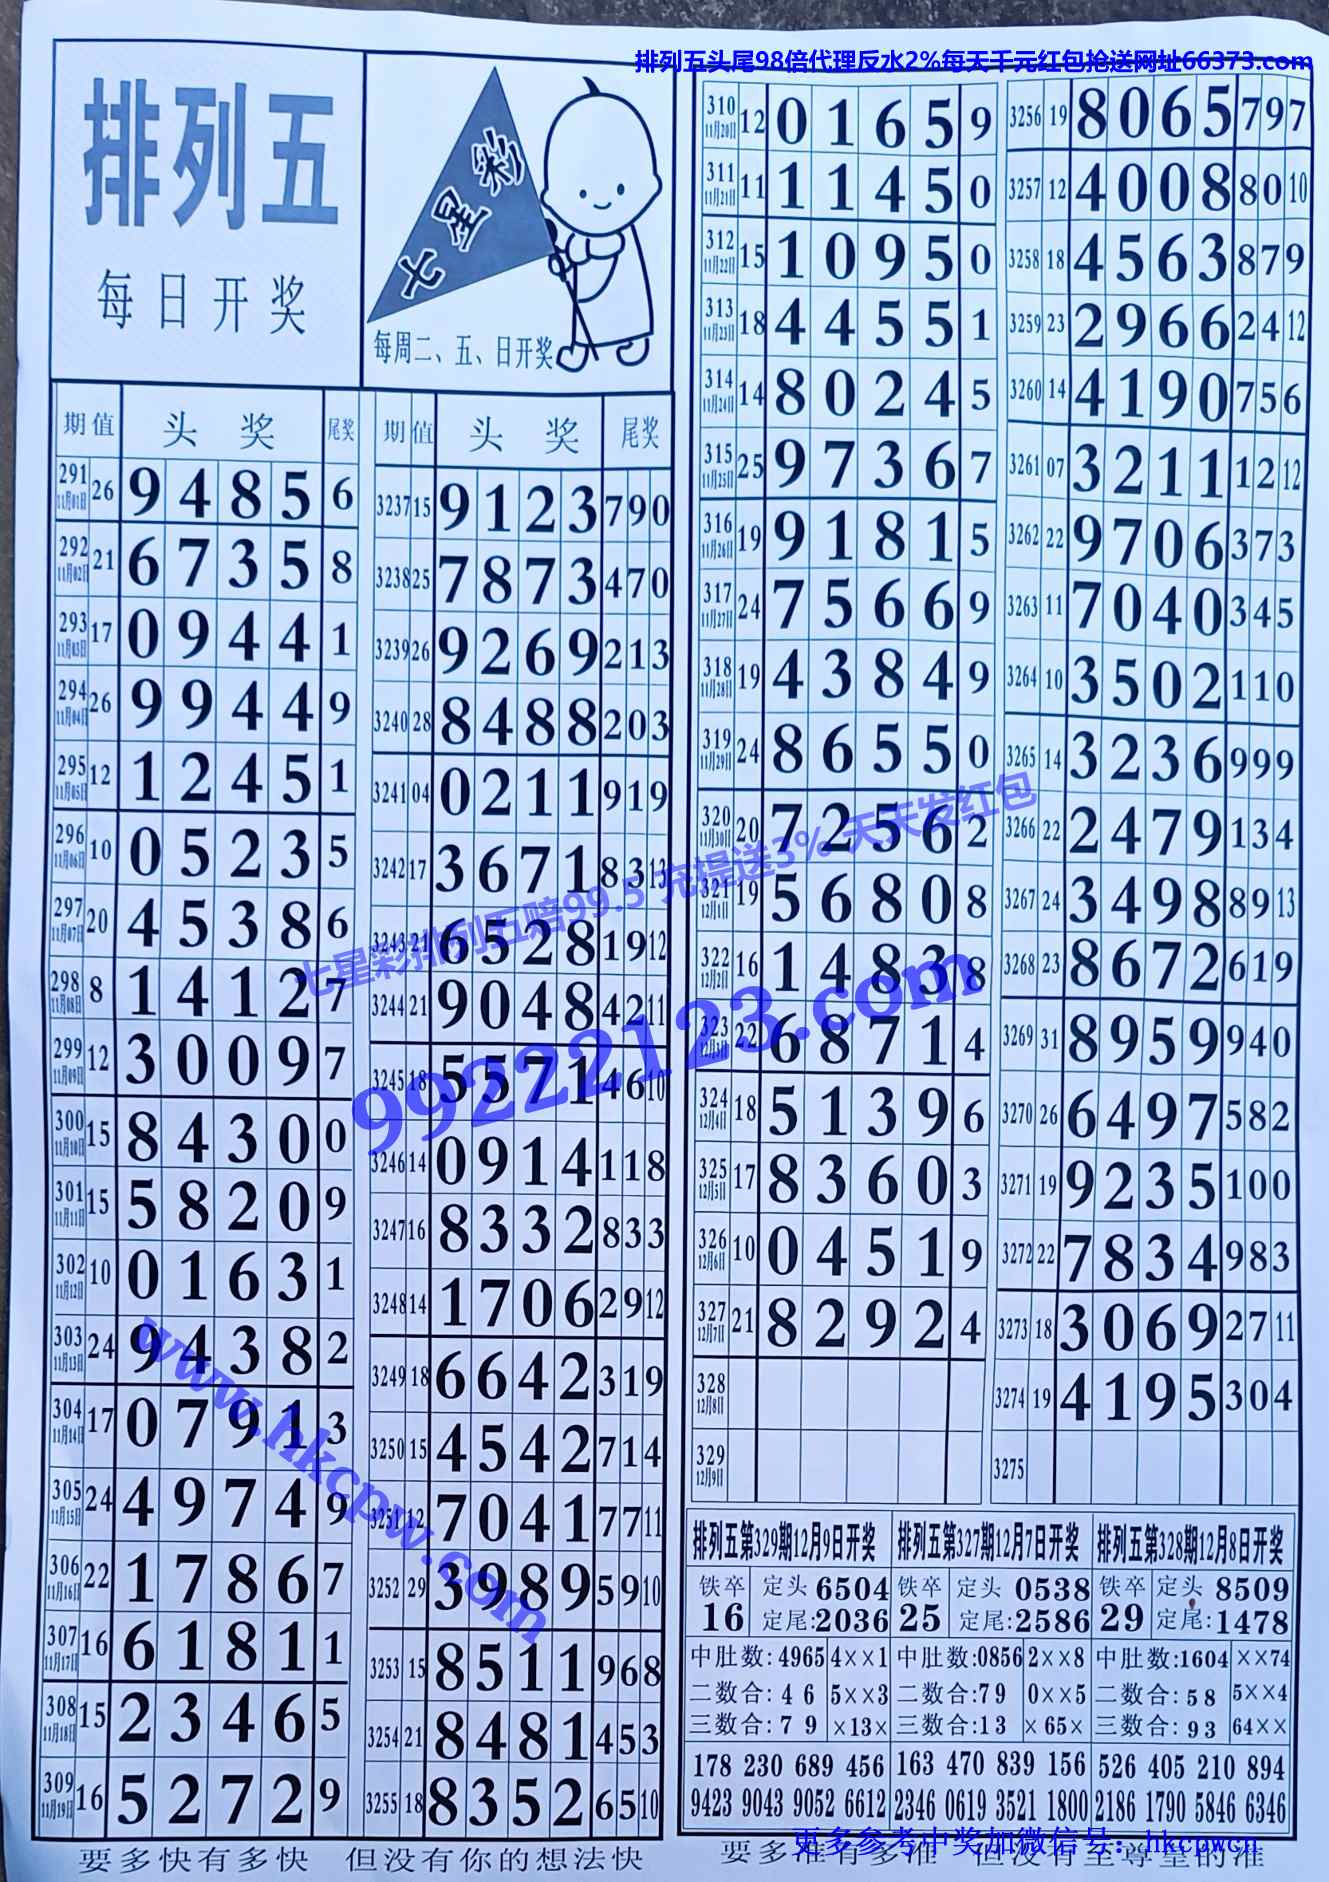 排列五头尾98倍代理反水2%每天千元红包抢送网址66373.com
排列五
每日开奖
七星彩
每周二、五、日开奖
期 值 头 奖 尾奖
291 11月01日 26 9 4 8 5 6
292 11月02日 21 6 7 3 5 8
293 11月03日 17 0 9 4 4 1
294 11月04日 26 9 9 4 4 9
295 11月05日 12 1 2 4 5 1
296 11月06日 10 0 5 2 3 5
297 11月07日 20 4 5 3 8 6
298 11月08日 8 1 4 1 2 7
299 11月09日 12 3 0 0 9 7
300 11月10日 15 8 4 3 0 0
301 11月11日 15 5 8 2 0 9
302 11月12日 10 0 1 6 3 1
303 11月13日 24 9 4 3 8 2
304 11月14日 17 0 7 9 1 3
305 11月15日 24 4 9 7 4 9
306 11月16日 22 1 7 8 6 7
307 11月17日 16 6 1 8 1 1
308 11月18日 15 2 3 4 6 5
309 11月19日 16 5 2 7 2 9
期 值 头 奖 尾奖
3237 15 9 1 2 3 7 9 0
3238 25 7 8 7 3 4 7 0
3239 26 9 2 6 9 2 1 3
3240 28 8 4 8 8 2 0 3
3241 04 0 2 1 1 9 1 9
3242 17 3 6 7 1 8 3 13
3243 21 6 5 2 8 1 9 12
3244 21 9 0 4 8 4 2 11
3245 18 5 5 7 1 4 6 10
3246 14 0 9 1 4 1 1 8
3247 16 8 3 3 2 8 3 3
3248 14 1 7 0 6 2 9 12
3249 18 6 6 4 2 3 1 9
3250 15 4 5 4 2 7 1 4
3251 12 7 0 4 1 7 7 11
3252 29 3 9 8 9 5 9 10
3253 15 8 5 1 1 9 6 8
3254 21 8 4 8 1 4 5 3
3255 18 8 3 5 2 6 5 10
310 11月20日 12 0 1 6 5 9
311 11月21日 11 1 1 4 5 0
312 11月22日 15 1 0 9 5 0
313 11月23日 18 4 4 5 5 1
314 11月24日 14 8 0 2 4 5
315 11月25日 25 9 7 3 6 7
316 11月26日 19 9 1 8 1 5
317 11月27日 24 7 5 6 6 9
318 11月28日 19 4 3 8 4 9
319 11月29日 24 8 6 5 5 0
320 11月30日 20 7 2 5 6 2
321 12月1日 19 5 6 8 0 8
322 12月2日 16 1 4 8 3 8
323 12月3日 22 6 8 7 1 4
324 12月4日 18 5 1 3 9 6
325 12月5日 17 8 3 6 0 3
326 12月6日 10 0 4 5 1 9
327 12月7日 21 8 2 9 2 4
328 12月8日
329 12月9日
3256 19 8 0 6 5 7 9 7
3257 12 4 0 0 8 8 0 10
3258 18 4 5 6 3 8 7 9
3259 23 2 9 6 6 2 4 12
3260 14 4 1 9 0 7 5 6
3261 07 3 2 1 1 1 2 12
3262 22 9 7 0 6 3 7 3
3263 11 7 0 4 0 3 4 5
3264 10 3 5 0 2 1 1 0
3265 14 3 2 3 6 9 9 9
3266 22 2 4 7 9 1 3 4
3267 24 3 4 9 8 8 9 13
3268 23 8 6 7 2 6 1 9
3269 31 8 9 5 9 9 4 0
3270 26 6 4 9 7 5 8 2
3271 19 9 2 3 5 1 0 0
3272 22 7 8 3 4 9 8 3
3273 18 3 0 6 9 2 7 11
3274 19 4 1 9 5 3 0 4
3275
七星彩排列五赔99.5 充提送3% 天天发红包
99222123.com
www.hkcpw.com
排列五第329期12月9日开奖 排列五第327期12月7日开奖 排列五第328期12月8日开奖
铁卒 定头 6504 铁卒 定头 0538 铁卒 定头 8509
16 定尾:2036 25 定尾:2586 29 定尾:1478
中肚数:4965 4××1 中肚数:0856 2××8 中肚数:1604 ××74
二数合:4 6 5××3 二数合:79 0××5 二数合:58 5××4
三数合:7 9 ×13× 三数合:13 ×65× 三数合:93 64××
178 230 689 456 163 470 839 156 526 405 210 894
9423 9043 9052 6612 2346 0619 3521 1800 2186 1790 5846 6346
更多参考中奖加微信号:hkcpwcn
要多快有多快 但没有你的想法快
要多准有多准 但没有至尊皇的准